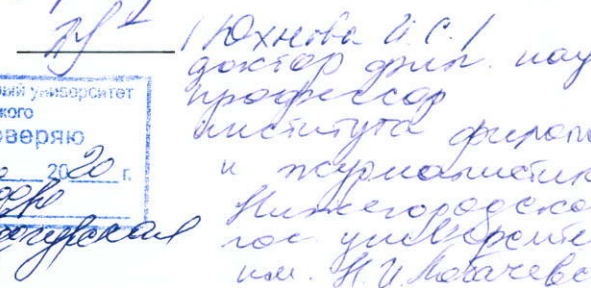 / Юхнова И.С. /
доктор фил. нау
профессор
института филоло
и журналистик
Нижегородско
гос университе
им. Н.И. Лобачевс
ский университет
ского
веряю
2020 г.